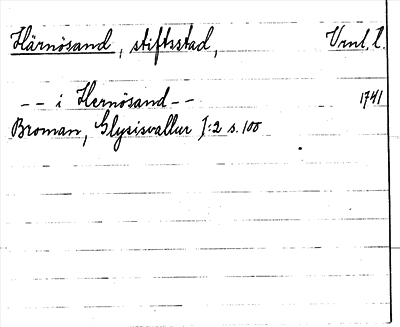 Härnösand, stiftsstad, Vrml. l.
-- i Hernösand -- 1741
Broman, Glysisvallur I:2 s. 100